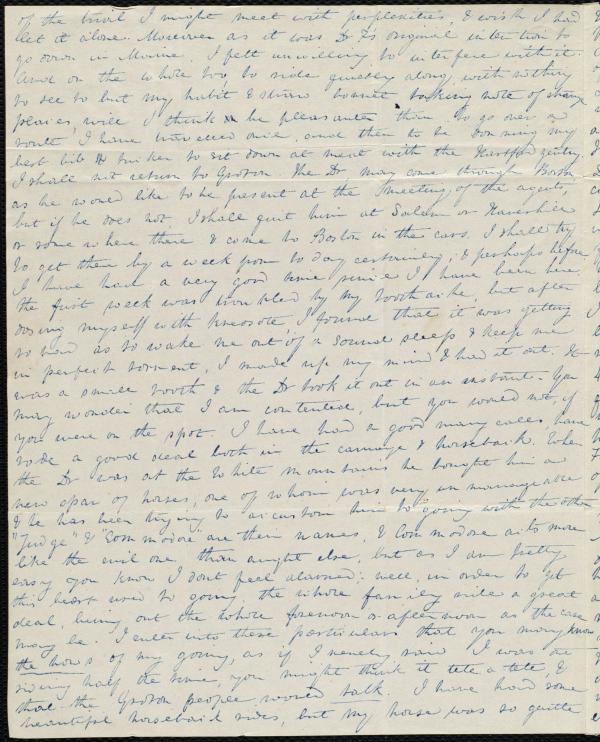 of the trial I might meet with perplexities, & wish I had
let it alone. Moreover as it was Dr F's original intention to
go down in Maine, I felt unwilling to interfere with it.
And on the whole too, to ride quietly along, with nothing
to see to but my habit & bonnet taking note of strange
places, will I think be pleasanter than to go over a
route I have travelled once, and then to be donning my
best bib & tucker to sit down at meat with the Hartford gentry.
I shall not return to Groton. The Dr may come through Boston
as he would like to be present at the meeting of the agents,
but if he does not, I shall quit him at Salem or Haverhill
or some where there & come to Boston in the cars. I shall try
to get there by a week from to day certainly, & perhaps before
I have had a very good time since I have been here.
the first week was troubled by my toothache, but after
dosing myself with kreosote, I found that it was getting
so bad as to wake me out of a sound sleep & keep me
in perfect torment, I made up my mind & had it out. It
was a small tooth & the Dr took it out in an instant. You
may wonder that I am contented, but you would not, if
you were on the spot. I have had a good many calls, have
rode a good deal both in the carriage & horseback. When
the Dr was at the White Mountains he bought him a
new span of horses, one of whom was very unmanageable
& he has been trying to accustom him to going with the other
"Judge" & "Commodore" are their names, & Commodore acts more
like the evil one than aught else, but as I am pretty
easy you know I dont feel alarmed; well, in order to get
this beast used to going the whole family ride a great
deal, being out the whole forenoon or afternoon as the case
may be. I enter into these particulars that you may know
the hows of my going, as if I merely said I was on
riding half the time, you might think it tete a tete, &
that the Groton people would talk. I have had some
beautiful horseback rides, but my horse was so quiet